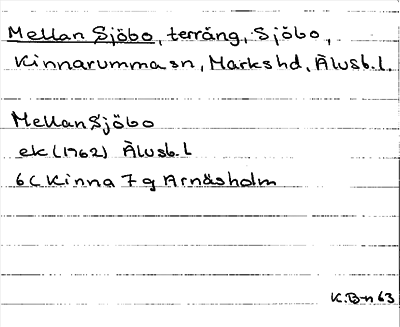 Mellan Sjöbo, terräng, Sjöbo,
Kinnarumma sn, Markshd, Älvsb.l.
Mellan Sjöbo
ek (1962) Älvsb.l
6C Kinna 7g Arnäsholm
K.B-n 63